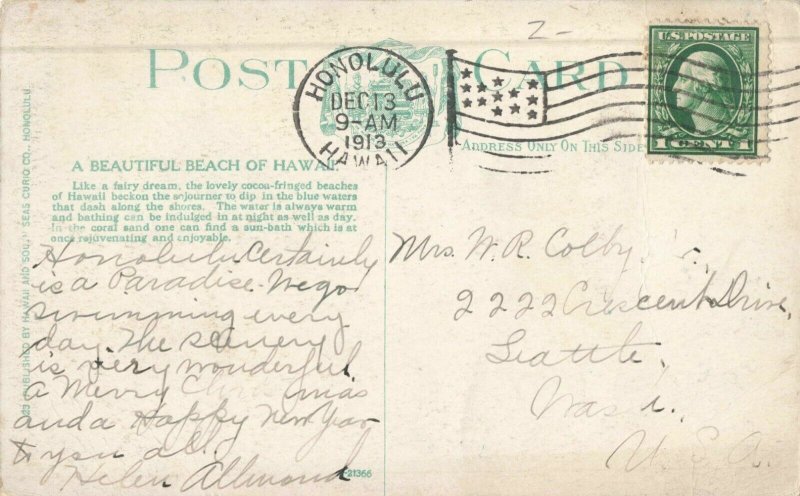 2-
POST CARD
HONOLULU
DEC 13
9-AM
1913
HAWAII
U.S. POSTAGE
1 CENT 1
ADDRESS ONLY ON THIS SIDE
A BEAUTIFUL BEACH OF HAWAII
Like a fairy dream, the lovely cocoa-fringed beaches
of Hawaii beckon the sojourner to dip in the blue waters
that dash along the shores. The water is always warm
and bathing can be indulged in at night as well as day.
In the coral sand one can find a sun-bath which is at
once rejuvenating and enjoyable.
Honolulu Certainly
is a Paradise. We go
swimming every
day. The scenery
is very wonderful.
a Merry Christmas
and a Happy New Year
to you all.
Helen Allmond
Mrs. W. R. Colby,
2222 Crescent Drive,
Seattle,
Wash.
U.S.A.
PUBLISHED BY HAWAII AND SOUTH SEAS CURIO CO., HONOLULU.
-21366